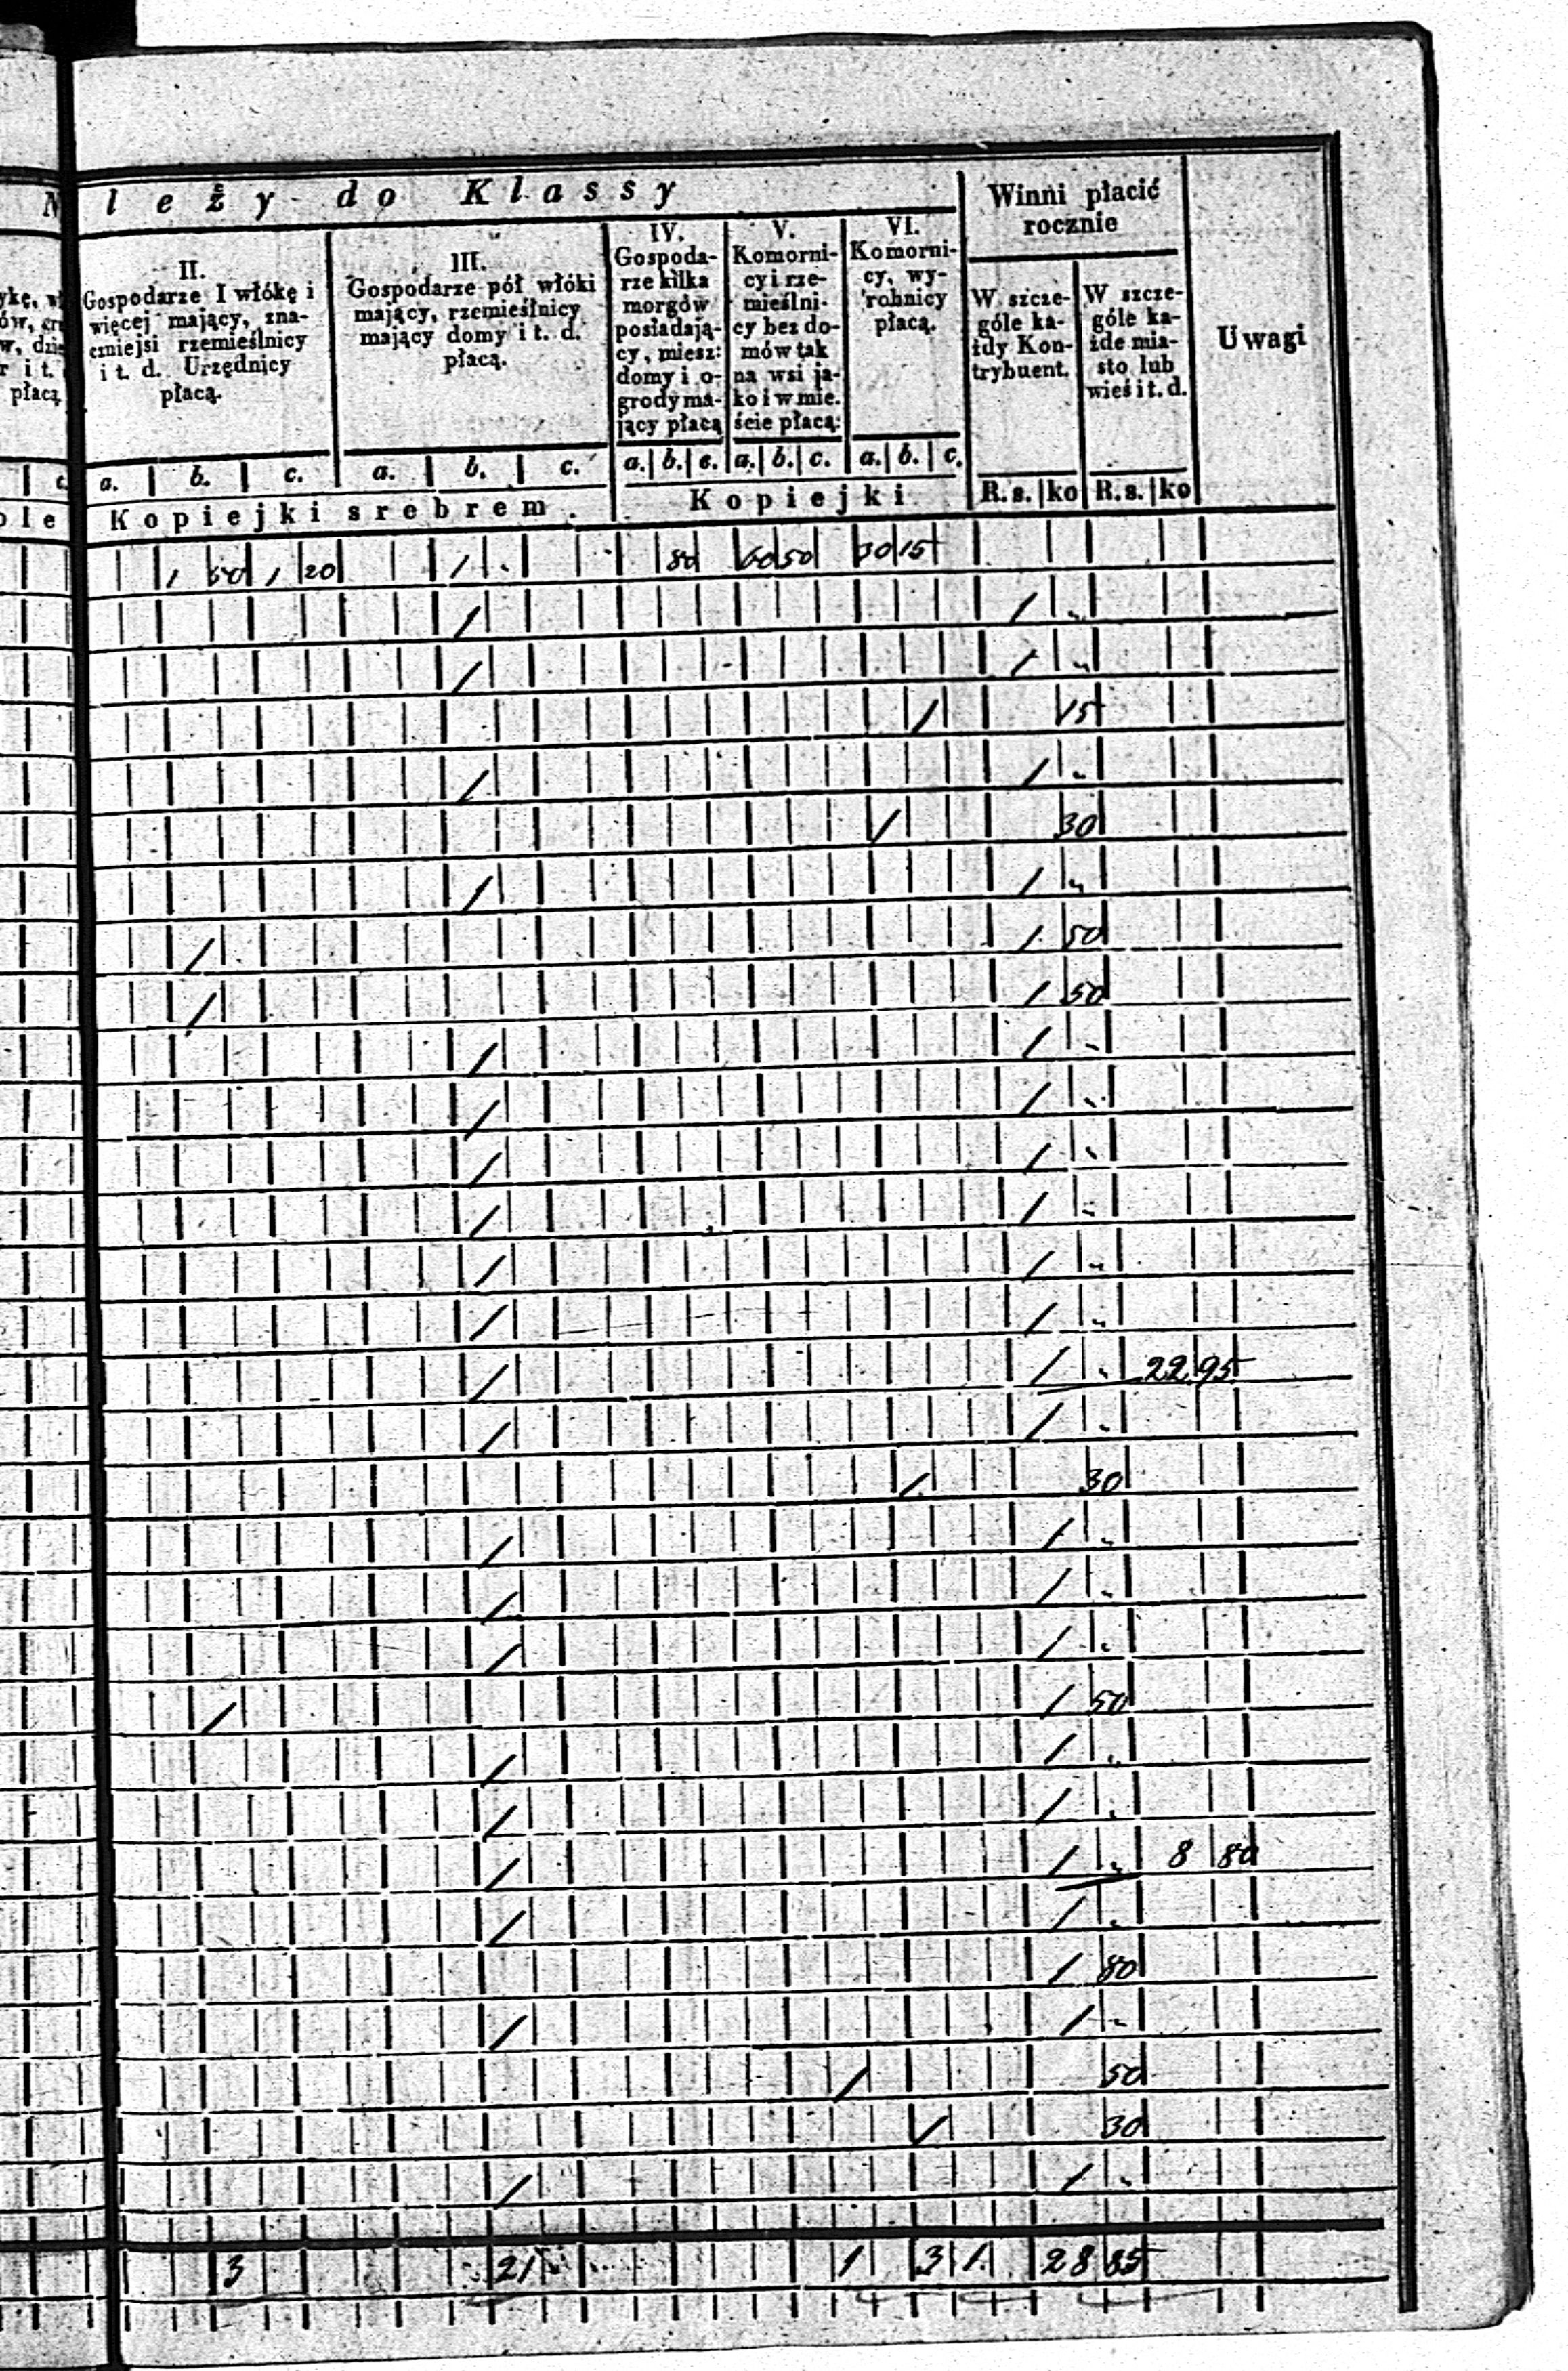 N leży do Klassy
Winni płacić
rocznie
II.
Gospodarze I włókę i
więcej mający, zna-
czniejsi rzemieślnicy
i t. d. Urzędnicy
płacą.
III.
Gospodarze pół włóki
mający, rzemieślnicy
mający domy i t. d.
płacą.
IV.
Gospoda-
rze kilka
morgów
posiadają-
cy, miesz:
domy i o-
grody ma-
jący płacą
V.
Komorni-
cy i rze-
mieślni-
cy bez do-
mów tak
na wsi ja-
ko i w mie.
ście płacą:
VI.
Komorni-
cy, wy-
robnicy
płacą.
W szcze-
góle ka-
żdy Kon-
trybuent.
W szcze-
góle ka-
żde mia-
sto lub
wieś i t. d.
Uwagi
płacą
a. b. c. a. b. c. a. b. c. a. b. c. a. b. c.
R. s. ko R. s. ko
Kopiejki srebrem.
Kopiejki
1 50 1 20 1 . 80 60 50 30 15
/ / "
/ / "
/ 15
/ / "
/ 30
/ / "
/ / 50
/ / 50
/ / "
/ / "
/ / "
/ / "
/ / "
/ / "
/ / " 22 95
/ / "
/ 30
/ / "
/ / "
/ / "
/ / 50
/ / "
/ / "
/ / " 8 80
/ / "
/ 80
/ / "
/ 50
/ 30
/ / "
3 21 1 3 1 28 85